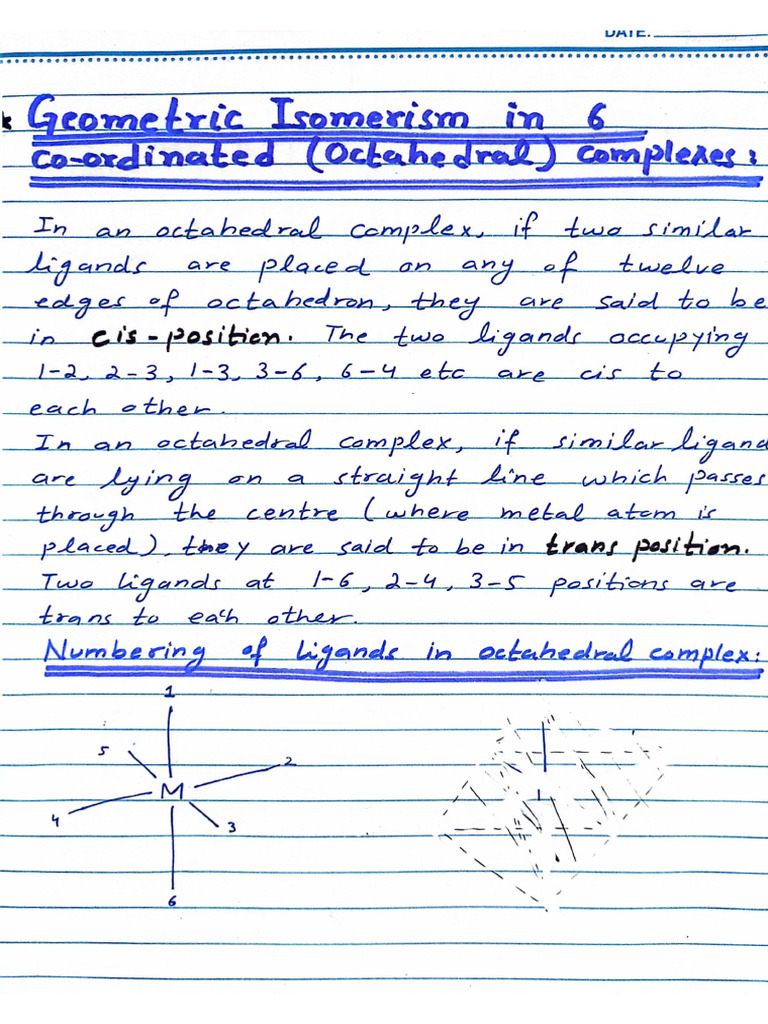 DATE:
Geometric Isomerism in 6
co-ordinated (Octahedral) complexes:
In an octahedral complex, if two similar
ligands are placed on any of twelve
edges of octahedron, they are said to be
in cis-position. The two ligands occupying
1-2, 2-3, 1-3, 3-6, 6-4 etc are cis to
each other.
In an octahedral complex, if similar ligand
are lying on a straight line which passes
through the centre (where metal atom is
placed), they are said to be in trans position.
Two ligands at 1-6, 2-4, 3-5 positions are
trans to each other.
Numbering of ligands in octahedral complex:
1
5
2
M
4
3
6